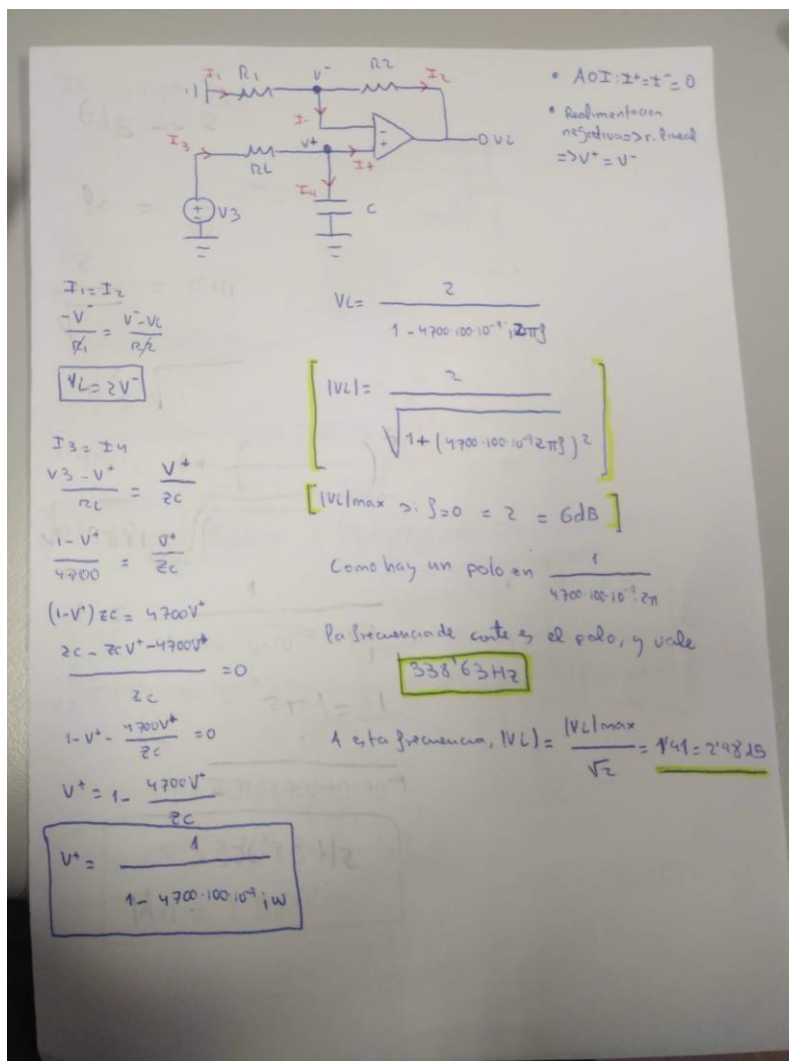 I1 R1 V- R2 I2
I-
I3 RL V+ I+ VL
I4
V3 C
• AOI: I+=I-=0
• Realimentacion
negativa=>r. lineal
=> V+ = V-
I1 = I2
-V-/R1 = V- - VL/R2
VL = 2V-
I3 = I4
V3 - V+/RL = V+/ZC
1 - V+/4700 = V+/ZC
(1-V+) ZC = 4700V+
ZC - ZCV+ - 4700V+/ZC = 0
1 - V+ - 4700V+/ZC = 0
V+ = 1 - 4700V+/ZC
V+ = 1/1 - 4700·100·10^-9 jω
VL = 2/1 - 4700·100·10^-9 j2πf
|VL| = 2/√1 + (4700·100·10^-9 2πf)^2
|VL|max si f=0 = 2 = 6dB
Como hay un polo en 1/4700·100·10^-9·2π
la frecuencia de corte es el polo, y vale
338'63Hz
A esta frecuencia, |VL| = |VL|max/√2 = 1'41 = 2'98dB